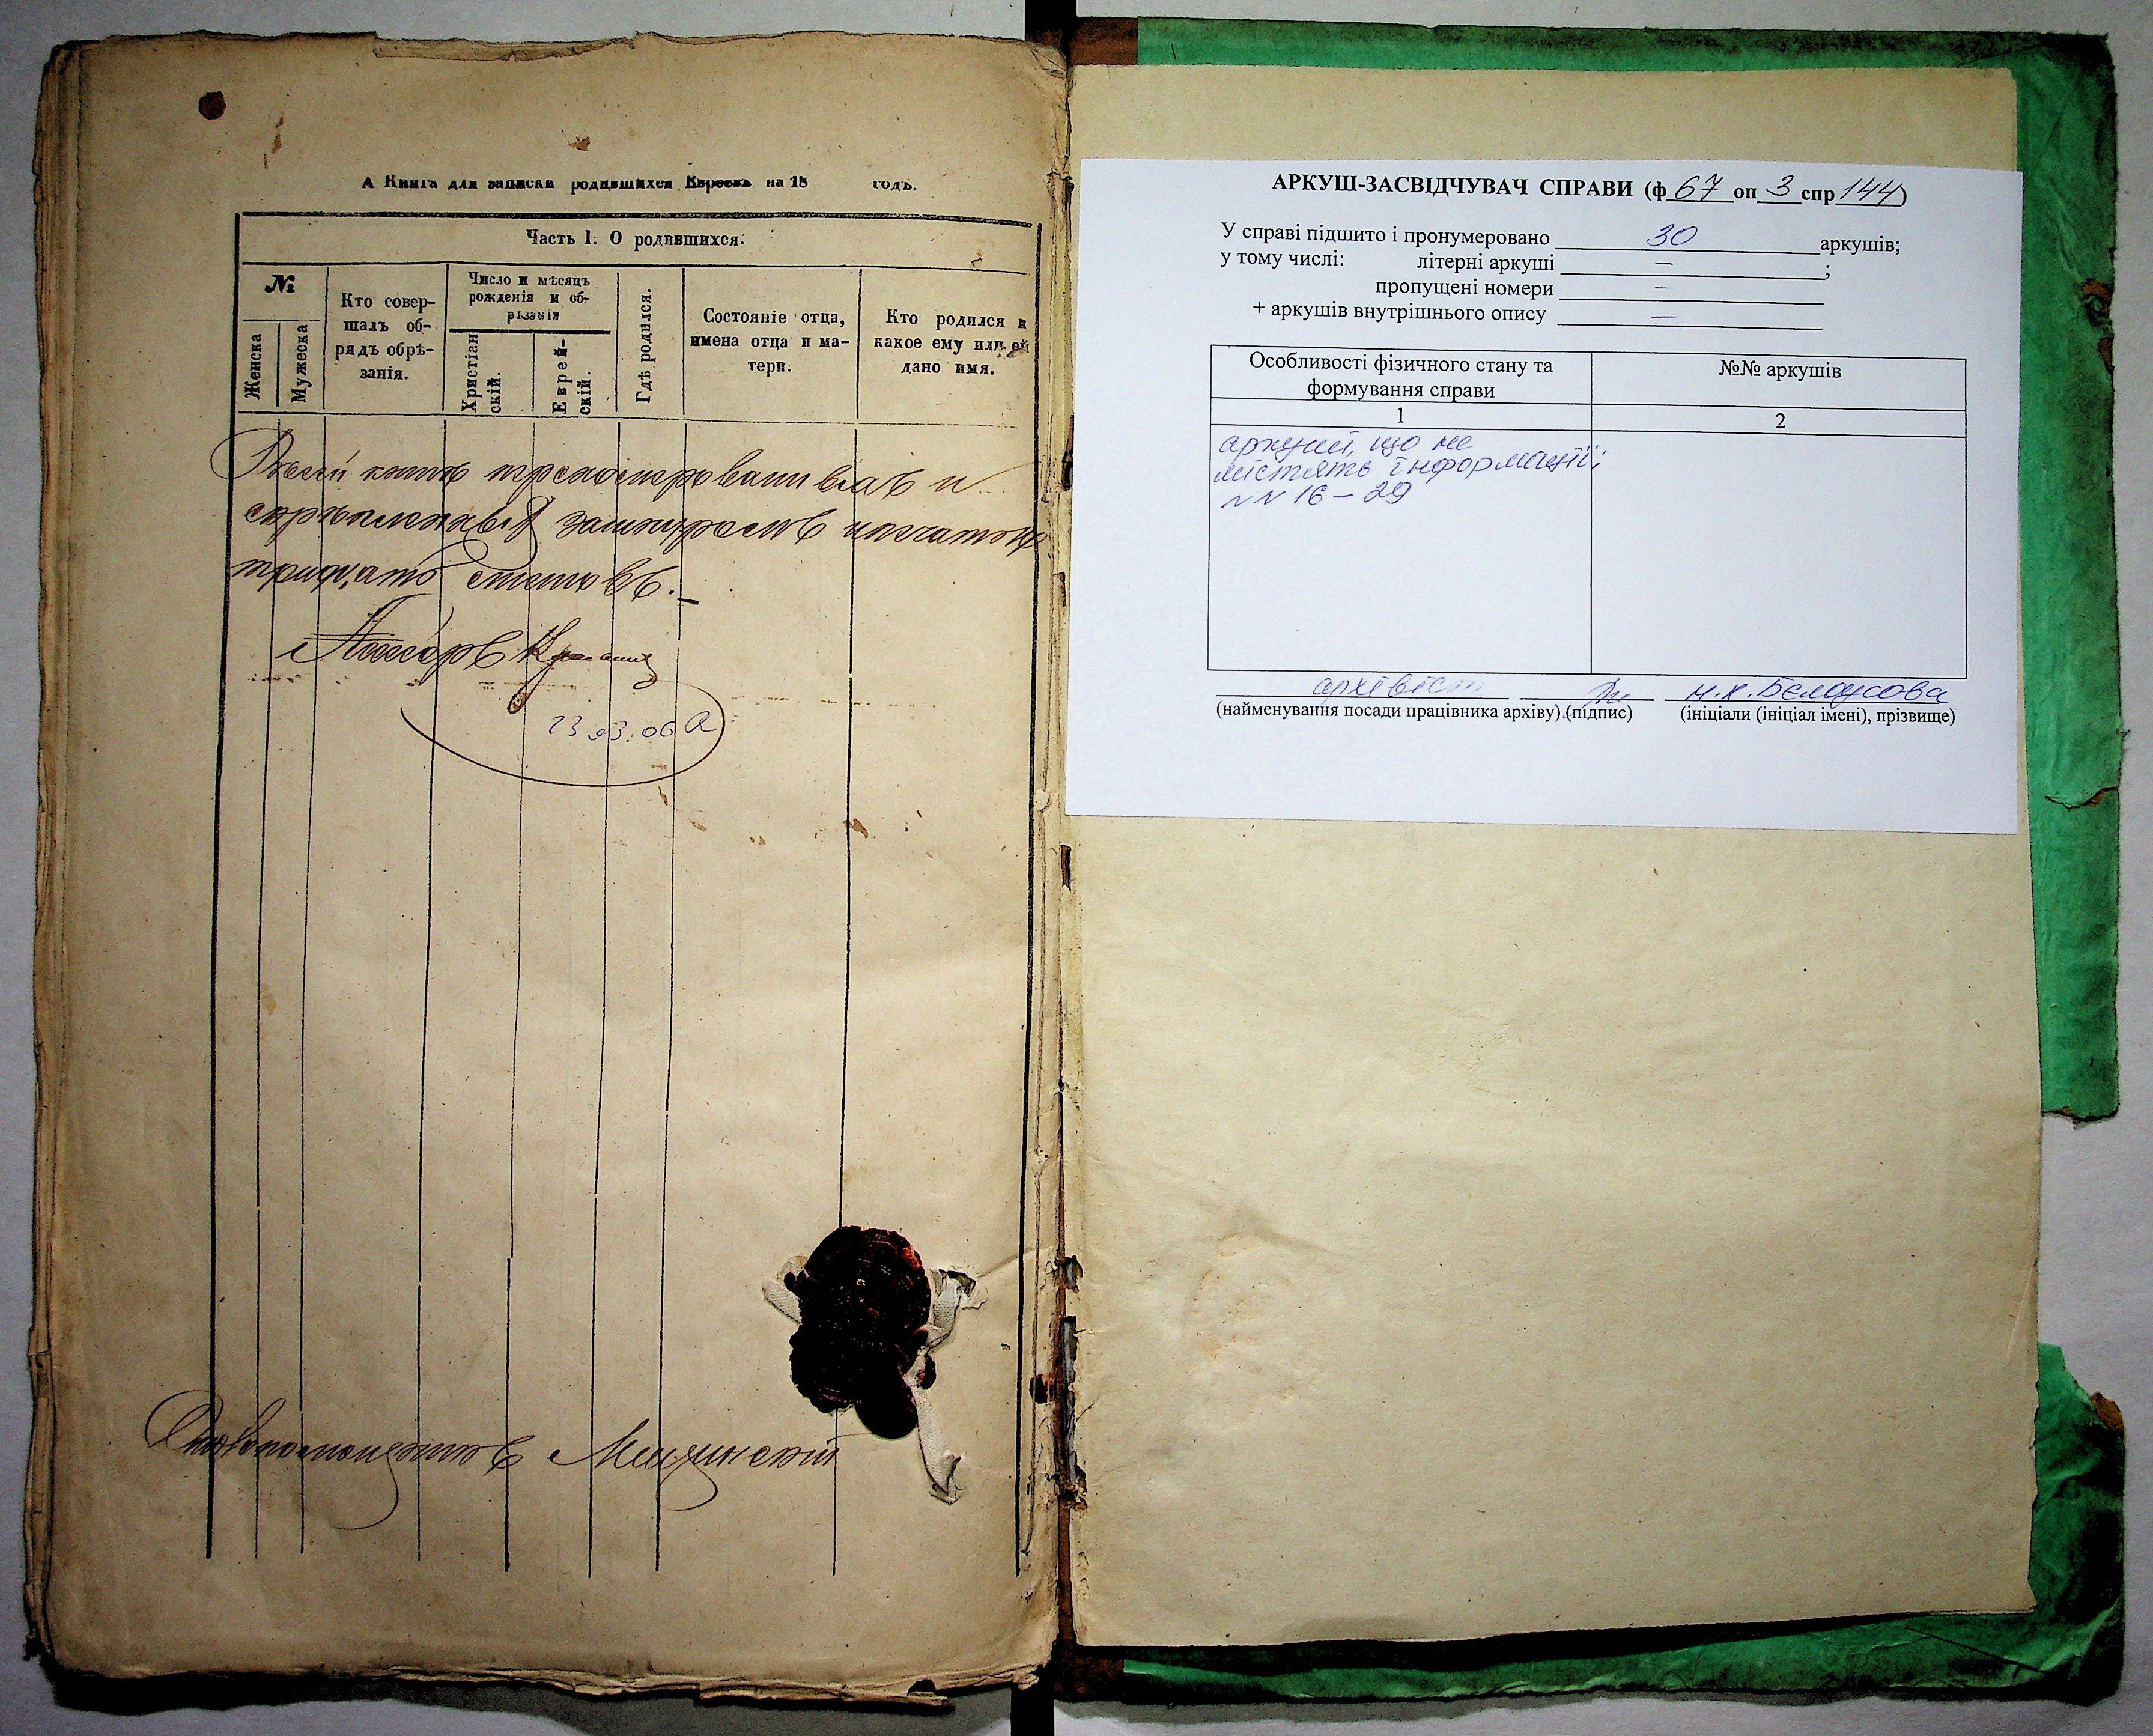 А Книга для записки родившихся Евреевъ на 18 годъ.
Часть I. О родившихся.
№
Женска
Мужеска
Кто совер-
шалъ об-
рядъ обрѣ-
занія.
Число и мѣсяцъ
рожденія и об-
рѣзанія
Христіан
скій.
Еврей-
скій.
Гдѣ родился.
Состояніе отца,
имена отца и ма-
тери.
Кто родился и
какое ему или ей
дано имя.
Всей книгѣ пронумерованныхъ и
скрѣпленныхъ зашнуромъ и печатью
тридцать листовъ.
23.03.06
АРКУШ-ЗАСВІДЧУВАЧ СПРАВИ (ф 67 оп 3 спр 144)
У справі підшито і пронумеровано 30 аркушів;
у тому числі: літерні аркуші — ;
пропущені номери —
+ аркушів внутрішнього опису —
Особливості фізичного стану та
формування справи
№№ аркушів
1
2
аркуші, що не
містять інформації:
№№ 16 – 29
архівіст Н.К. Бєлоусова
(найменування посади працівника архіву) (підпис) (ініціали (ініціал імені), прізвище)